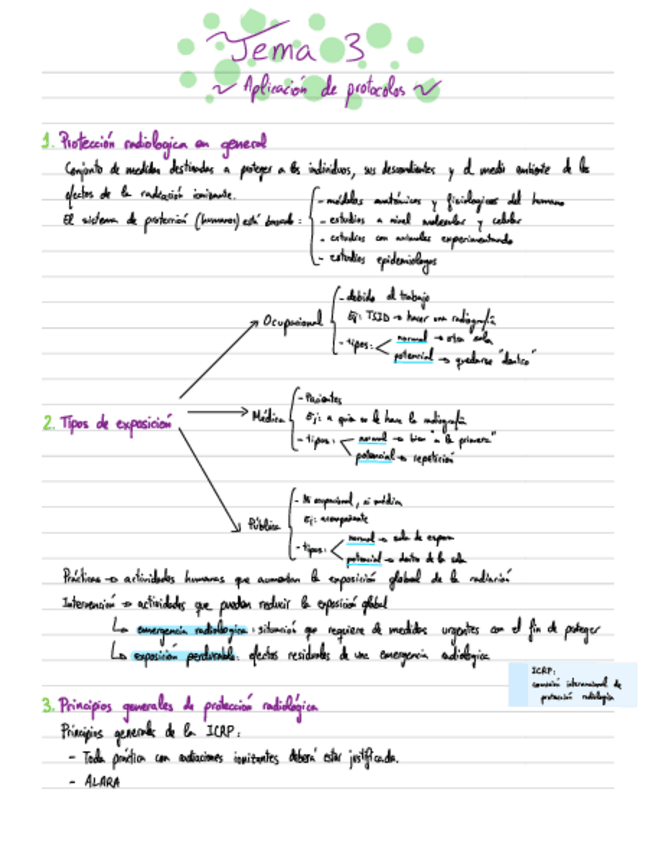 Tema 3
~ Aplicación de protocolos ~
1. Protección radiologica en general
Conjunto de medidas destinadas a proteger a los individuos, sus descendientes y el medio ambiente de los
efectos de la radiación ionizante.
El sistema de protección (humanos) está basado:
- modelos anatómicos y fisiologicos del humano
- estudios a nivel molecular y celular
- estudios con animales experimentando
- estudios epidemiologos
2. Tipos de exposición
→ Ocupacional
- debido al trabajo
Ej: TSID → hacer una radiografía
- tipos:
normal → otra sala
potencial → quedarse "dentro"
→ Médica
- Pacientes
Ej: a quien se le hace la radiografía
- tipos:
normal → bien "a la primera"
potencial → repetición
→ Pública
- Ni ocupacional, ni médica
Ej: acompañante
- tipos:
normal → sala de espera
potencial → dentro de la sala
Prácticas → actividades humanas que aumentan la exposición global de la radiación
Intervención → actividades que puedan reducir la exposición global
↳ emergencia radiologica: situación que requiere de medidas urgentes con el fin de proteger
↳ exposición perdurable: efectos residuales de una emergencia radiologica
ICRP:
comisión internacional de
protección radiologica
3. Principios generales de protección radiológica
Principios generales de la ICRP:
- Toda práctica con radiaciones ionizantes deberá estar justificada.
- ALARA